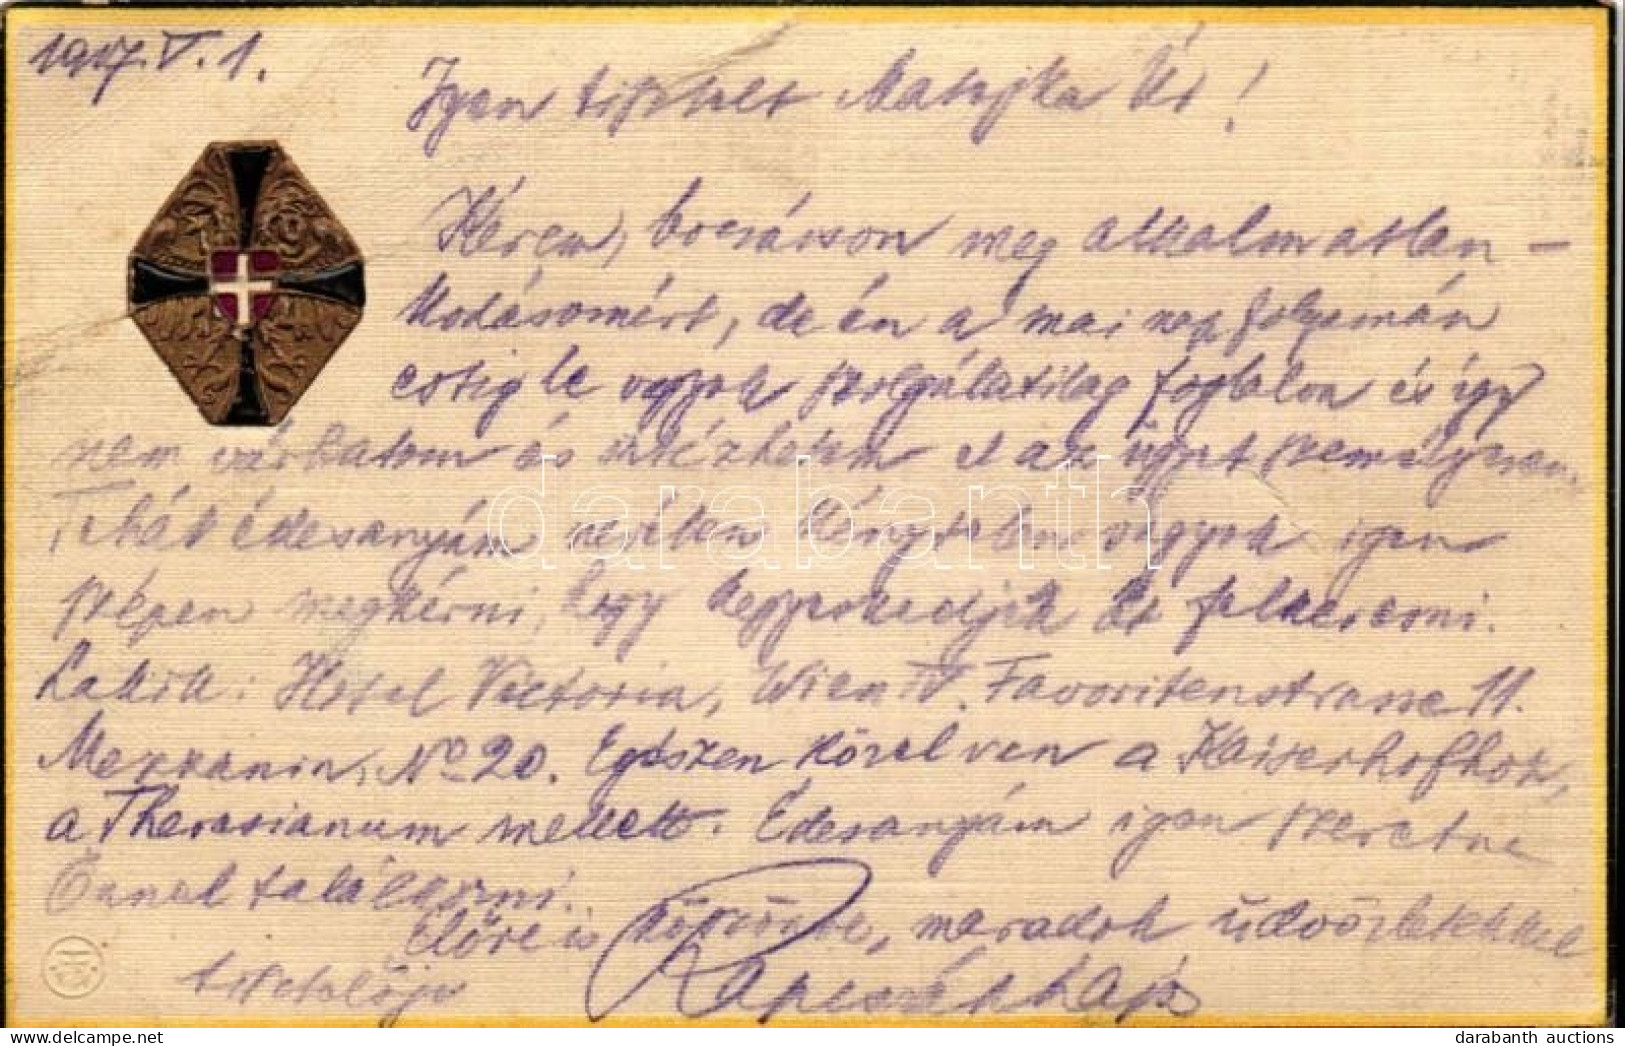 1917. V. 1.
Igen tisztelt Matejka Úr!
Kérem, bocsásson meg alkalmatlan-
kodásomért, de én a mai nap folyamán
estig le vagyok szolgálatilag foglalva és így
nem várhatom és intézhetem el az ügyet személyesen.
Tehát édesanyám nevében kénytelen vagyok igen
szépen megkérni, hogy kegyeskedjék Őt felkeresni.
Lakik: Hotel Victoria, Wien IV. Favoritenstrasse 11.
Mezzanin, No 20. Egészen közel van a Kaiserhofhoz,
a Theresianum mellett. Édesanyám igen szeretne
Önnel találkozni.
Előre is köszönve, maradok üdvözletekkel
tisztelője
darabanth
darabanth auctions